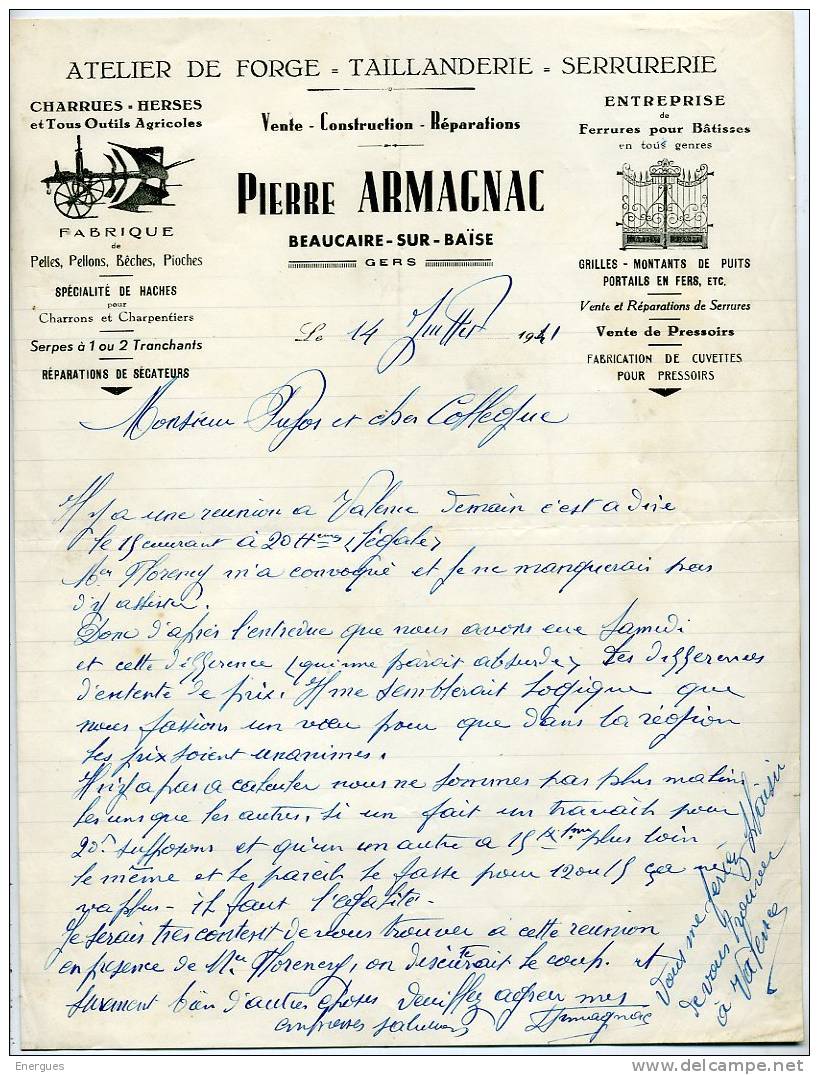 ATELIER DE FORGE = TAILLANDERIE = SERRURERIE
CHARRUES - HERSES
et Tous Outils Agricoles
FABRIQUE
de
Pelles, Pellons, Bêches, Pioches
SPÉCIALITÉ DE HACHES
pour
Charrons et Charpentiers
Serpes à 1 ou 2 Tranchants
RÉPARATIONS DE SÉCATEURS
Vente - Construction - Réparations
PIERRE ARMAGNAC
BEAUCAIRE-SUR-BAÏSE
GERS
ENTREPRISE
de
Ferrures pour Bâtisses
en tous genres
GRILLES - MONTANTS DE PUITS
PORTAILS EN FERS, ETC.
Vente et Réparations de Serrures
Vente de Pressoirs
FABRICATION DE CUVETTES
POUR PRESSOIRS
Le 14 Juillet 1941
Monsieur Pujos et cher Collegue
Il y a une reunion a Valence demain c'est a dire
le 15 courant à 20 H (légale)
Mr Florency m'a convoqué et je ne manquerais pas
d'y assister.
Donc d'après l'entrevue que nous avons eue Samedi
et cette difference (qui me parait absurde) des differences
d'entente de prix. Il me semblerait logique que
nous fassions un vœu pour que dans la région
les prix soient unanimes.
Il n'y a pas a calculer nous ne sommes pas plus malins
les uns que les autres, si un fait un travail pour
20f supposons et qu'un un autre a 15 Km plus loin
le même et le pareil le fasse pour 12 ou 15 ça ne
va plus - il faut l'égalité.
Je serais tres content de vous trouver a cette reunion
en presence de Mr Florency, on discuterait le coup. et
surement bien d'autres choses Veuillez agreer mes
empresses salutations
Armagnac
Vous me ferez plaisir
de vous trouver
à Valence
Energues
delcampe.net